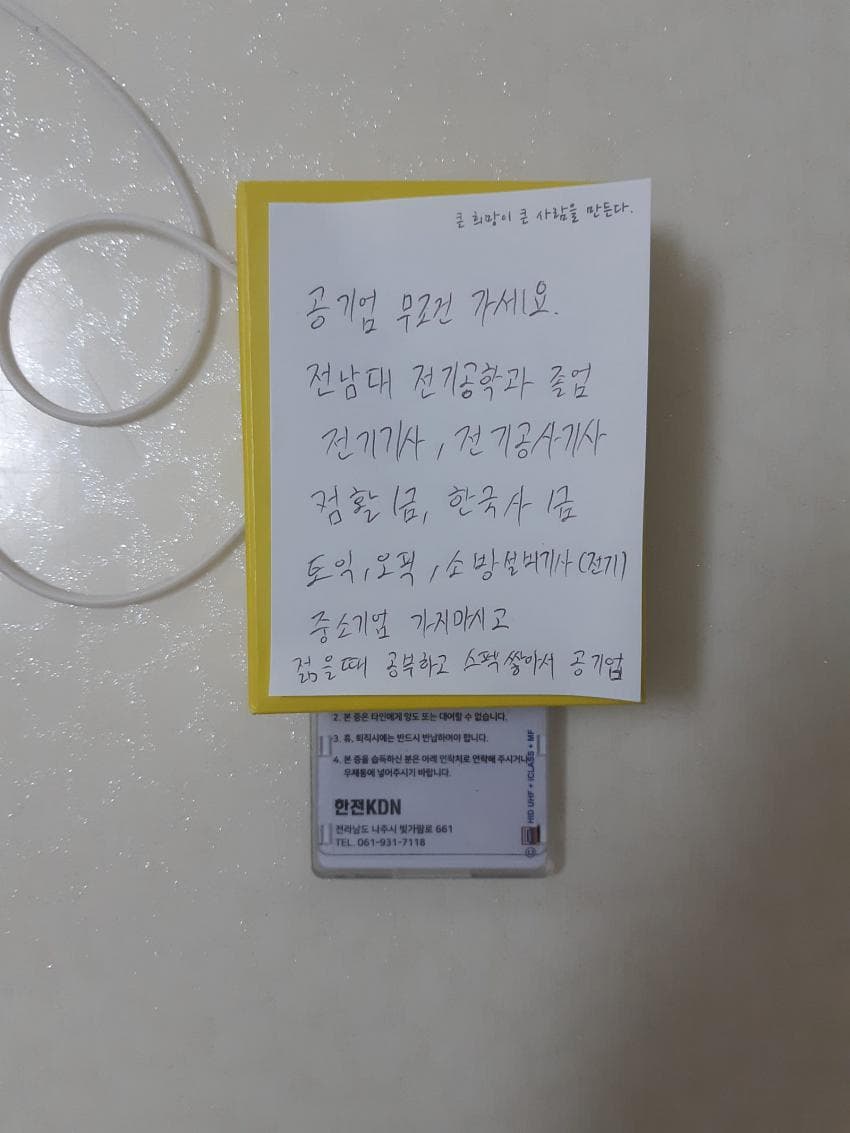 큰 희망이 큰 사람을 만든다.
공기업 무조건 가세요.
전남대 전기공학과 졸업
전기기사, 전기공사기사
컴활 1급, 한국사 1급
토익, 오픽, 소방설비기사(전기)
중소기업 가지마시고
젊을때 공부하고 스펙쌓아서 공기업
2. 본 증은 타인에게 양도 또는 대여할 수 없습니다.
3. 휴, 퇴직시에는 반드시 반납하여야 합니다.
4. 본 증을 습득하신 분은 아래 연락처로 연락해 주시거나
우체통에 넣어주시기 바랍니다.
한전KDN
전라남도 나주시 빛가람로 661
TEL. 061-931-7118
HID UHF + iCLASS + MF